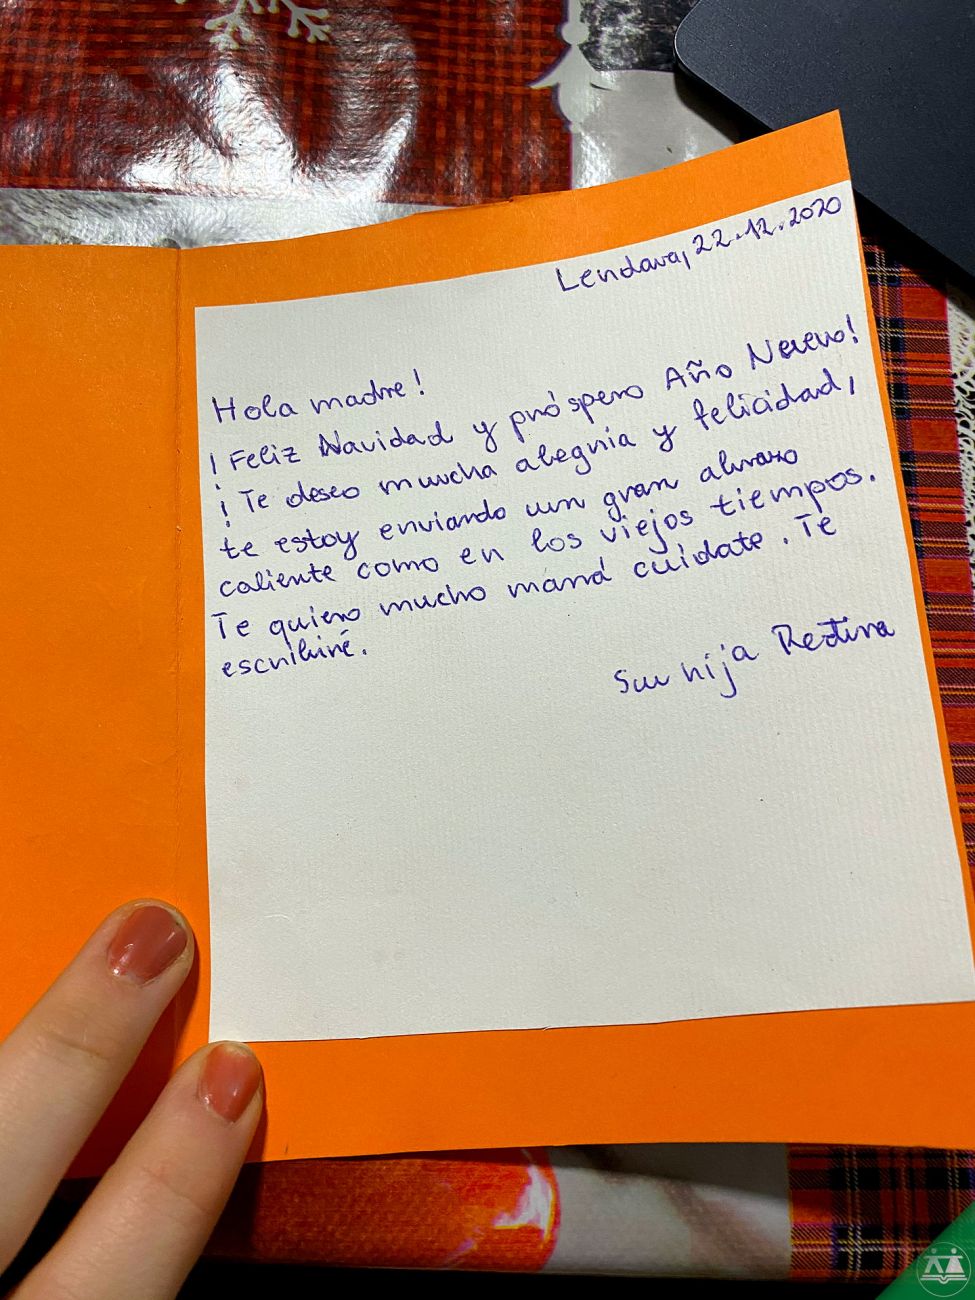 Lendava, 22.12.2020
Hola madre!
¡Feliz Navidad y próspero Año Nuevo!
¡Te deseo mucha alegria y felicidad,
te estoy enviando un gran abrazo
caliente como en los viejos tiempos.
Te quiero mucho mamá cuidate. Te
escribiré.
Su hija